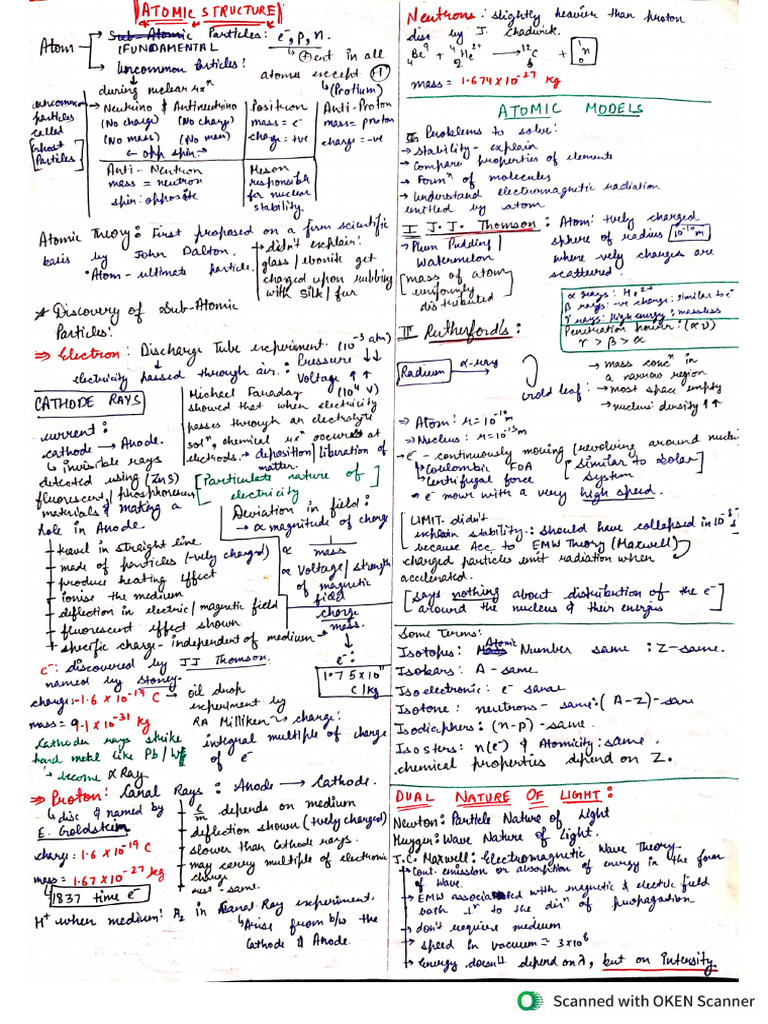 ATOMIC STRUCTURE
Atom → Sub-Atomic Particles: e⁻, p, n.
(FUNDAMENTAL
↳ (+)ent in all
→ Uncommon Particles!
atoms except H-1
↳ (Protium)
during nuclear rxⁿ
uncommon particles called [Ghost Particles]
→ Neutrino & Antineutrino
(No charge) (No charg)
(No mass) (No mass)
← opp spin →
Positron
mass = e⁻
charge = +ve
Anti-Proton
mass = proton
charge = -ve
Anti-Neutron
mass = neutron
spin: opposite
Meson
responsible
for nuclear
stability.
Atomic Theory: First proposed on a firm scientific
basis by John Dalton.
• Atom - ultimate particle.
→ didn't explain:
glass / ebonite get
charged upon rubbing
with silk / fur
* Discovery of Sub-Atomic
Particles:
⇒ Electron: Discharge Tube experiment. (10⁻³ atm)
electricity passed through air. : Pressure ↓↓
Voltage ↑↑
(10⁴ V)
CATHODE RAYS
Michael Faraday
showed that when electricity
passes through an electrolyte
solⁿ, chemical rxⁿ occured at
electrods. → deposition / liberation of
matter.
[Particulate nature of
electricity
current:
cathode → Anode.
↳ invisible rays
detected using (ZnS)
fluorescent / phosphorescent
materials & making a
hole in Anode
→ travel in straight line
→ made of particles (-vely charged)
→ produce heating effect
→ ionise the medium
→ deflection in electric / magnetic field
→ fluorescent effect shown
→ specific charge - independent of medium
Deviation in field:
→ α magnitude of charge
α 1/mass
α Voltage / strength
of magnetic
field
charge
mass.
e⁻:
1.75 x 10¹¹
C/kg
e⁻: discovered by JJ Thomson.
named by Stoney
charge: -1.6 x 10⁻¹⁹ C → oil drop
experiment by
RA Milliken → charge:
integral multiple of charge
of e⁻
mass = 9.1 x 10⁻³¹ kg
Cathode rays strike
hard metal like Pb / W
↳ become X Ray
⇒ Proton: Canal Rays: Anode → Cathode.
↳ disc & named by
E. Goldstein
charge: 1.6 x 10⁻¹⁹ C
mass = 1.67 x 10⁻²⁷ kg
↳ 1837 time e⁻
→ e/m depends on medium
→ deflection shown (+vely charged)
→ slower than Cathode rays.
→ may carry multiple of electronic
charge
→ rest: same.
H⁺ when medium: H₂ in Canal Ray experiment.
↳ Arise from b/w the
Cathode & Anode.
Neutrons: slightly heavier than proton
disc by J. Chadwick.
₄Be⁹ + ₂⁴He²⁺ → ¹²₆C + ¹₀n
mass = 1.674 x 10⁻²⁷ kg
ATOMIC MODELS
Problems to solve:
→ stability - explain
→ Compare properties of elements
→ Formⁿ of molecules
→ Understand electromagnetic radiation
emitted by atom
I J. J. Thomson: Atom: +vely charged
sphere of radius 10⁻¹⁰m
where -vely charges are
scattered.
→ Plum Pudding /
Watermelon
[mass of atom
uniformly
distributed
α rays: He²⁺
β rays: -ve charge: similar to e⁻
γ rays: high energy: massless
Penetration power: (α v)
γ > β > α
II Rutherford's:
Radium α-ray →
Gold leaf:
→ mass concⁿ in
a narrow region
→ most space empty
→ nucleus: density ↑↑
⇒ Atom: r = 10⁻¹⁰m
⇒ Nucleus: r = 10⁻¹⁵m
→ e⁻ - continuously moving (revolving around nucleus
↳ Coulombic FOA
↳ Centrifugal force
[Similar to Solar
System
→ e⁻ move with a very high speed.
[LIMIT: didn't
explain stability: should have collapsed in 10⁻⁸ s]
because Acc to EMW Theory (Maxwell)
charged particles emit radiation when
accelerated.
[Says nothing about distribution of the e⁻
around the nucleus & their energies]
Some Terms:
Isotopes: Atomic Number same : Z-same.
Isobars: A - same.
Isoelectronic: e⁻ same
Isotone: neutrons - same: (A-Z)-same
Isodiaphers: (n-p) - same.
Isosters: n(e⁻) & Atomicity: same.
chemical properties depend on Z.
DUAL NATURE OF LIGHT:
Newton: Particle Nature of Light
Huygen: Wave Nature of Light.
J.C. Maxwell: Electromagnetic Wave Theory.
→ Cont. emission or absorption of energy in the form
of wave.
→ EMW associated with magnetic & electric field
both ⊥ʳ to the dirⁿ of propagation
→ don't require medium
→ speed in vacuum = 3x10⁸
→ energy doesn't depend on λ, but on intensity
Scanned with OKEN Scanner